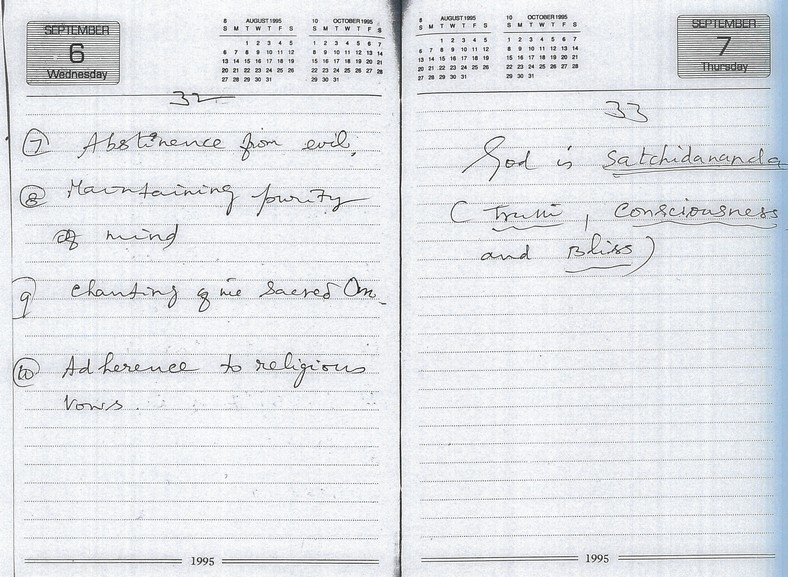 SEPTEMBER
6
Wednesday
8 AUGUST 1995
S M T W T F S
1 2 3 4 5
6 7 8 9 10 11 12
13 14 15 16 17 18 19
20 21 22 23 24 25 26
27 28 29 30 31
10 OCTOBER 1995
S M T W T F S
1 2 3 4 5 6 7
8 9 10 11 12 13 14
15 16 17 18 19 20 21
22 23 24 25 26 27 28
29 30 31
32
7 Abstinence from evil,
8 Maintaining purity
of mind
9 chanting of the Sacred Om.
10 Adherence to religious
vows.
1995
8 AUGUST 1995
S M T W T F S
1 2 3 4 5
6 7 8 9 10 11 12
13 14 15 16 17 18 19
20 21 22 23 24 25 26
27 28 29 30 31
10 OCTOBER 1995
S M T W T F S
1 2 3 4 5 6 7
8 9 10 11 12 13 14
15 16 17 18 19 20 21
22 23 24 25 26 27 28
29 30 31
SEPTEMBER
7
Thursday
33
God is Satchidananda
( Truth, Consciousness
and Bliss)
1995